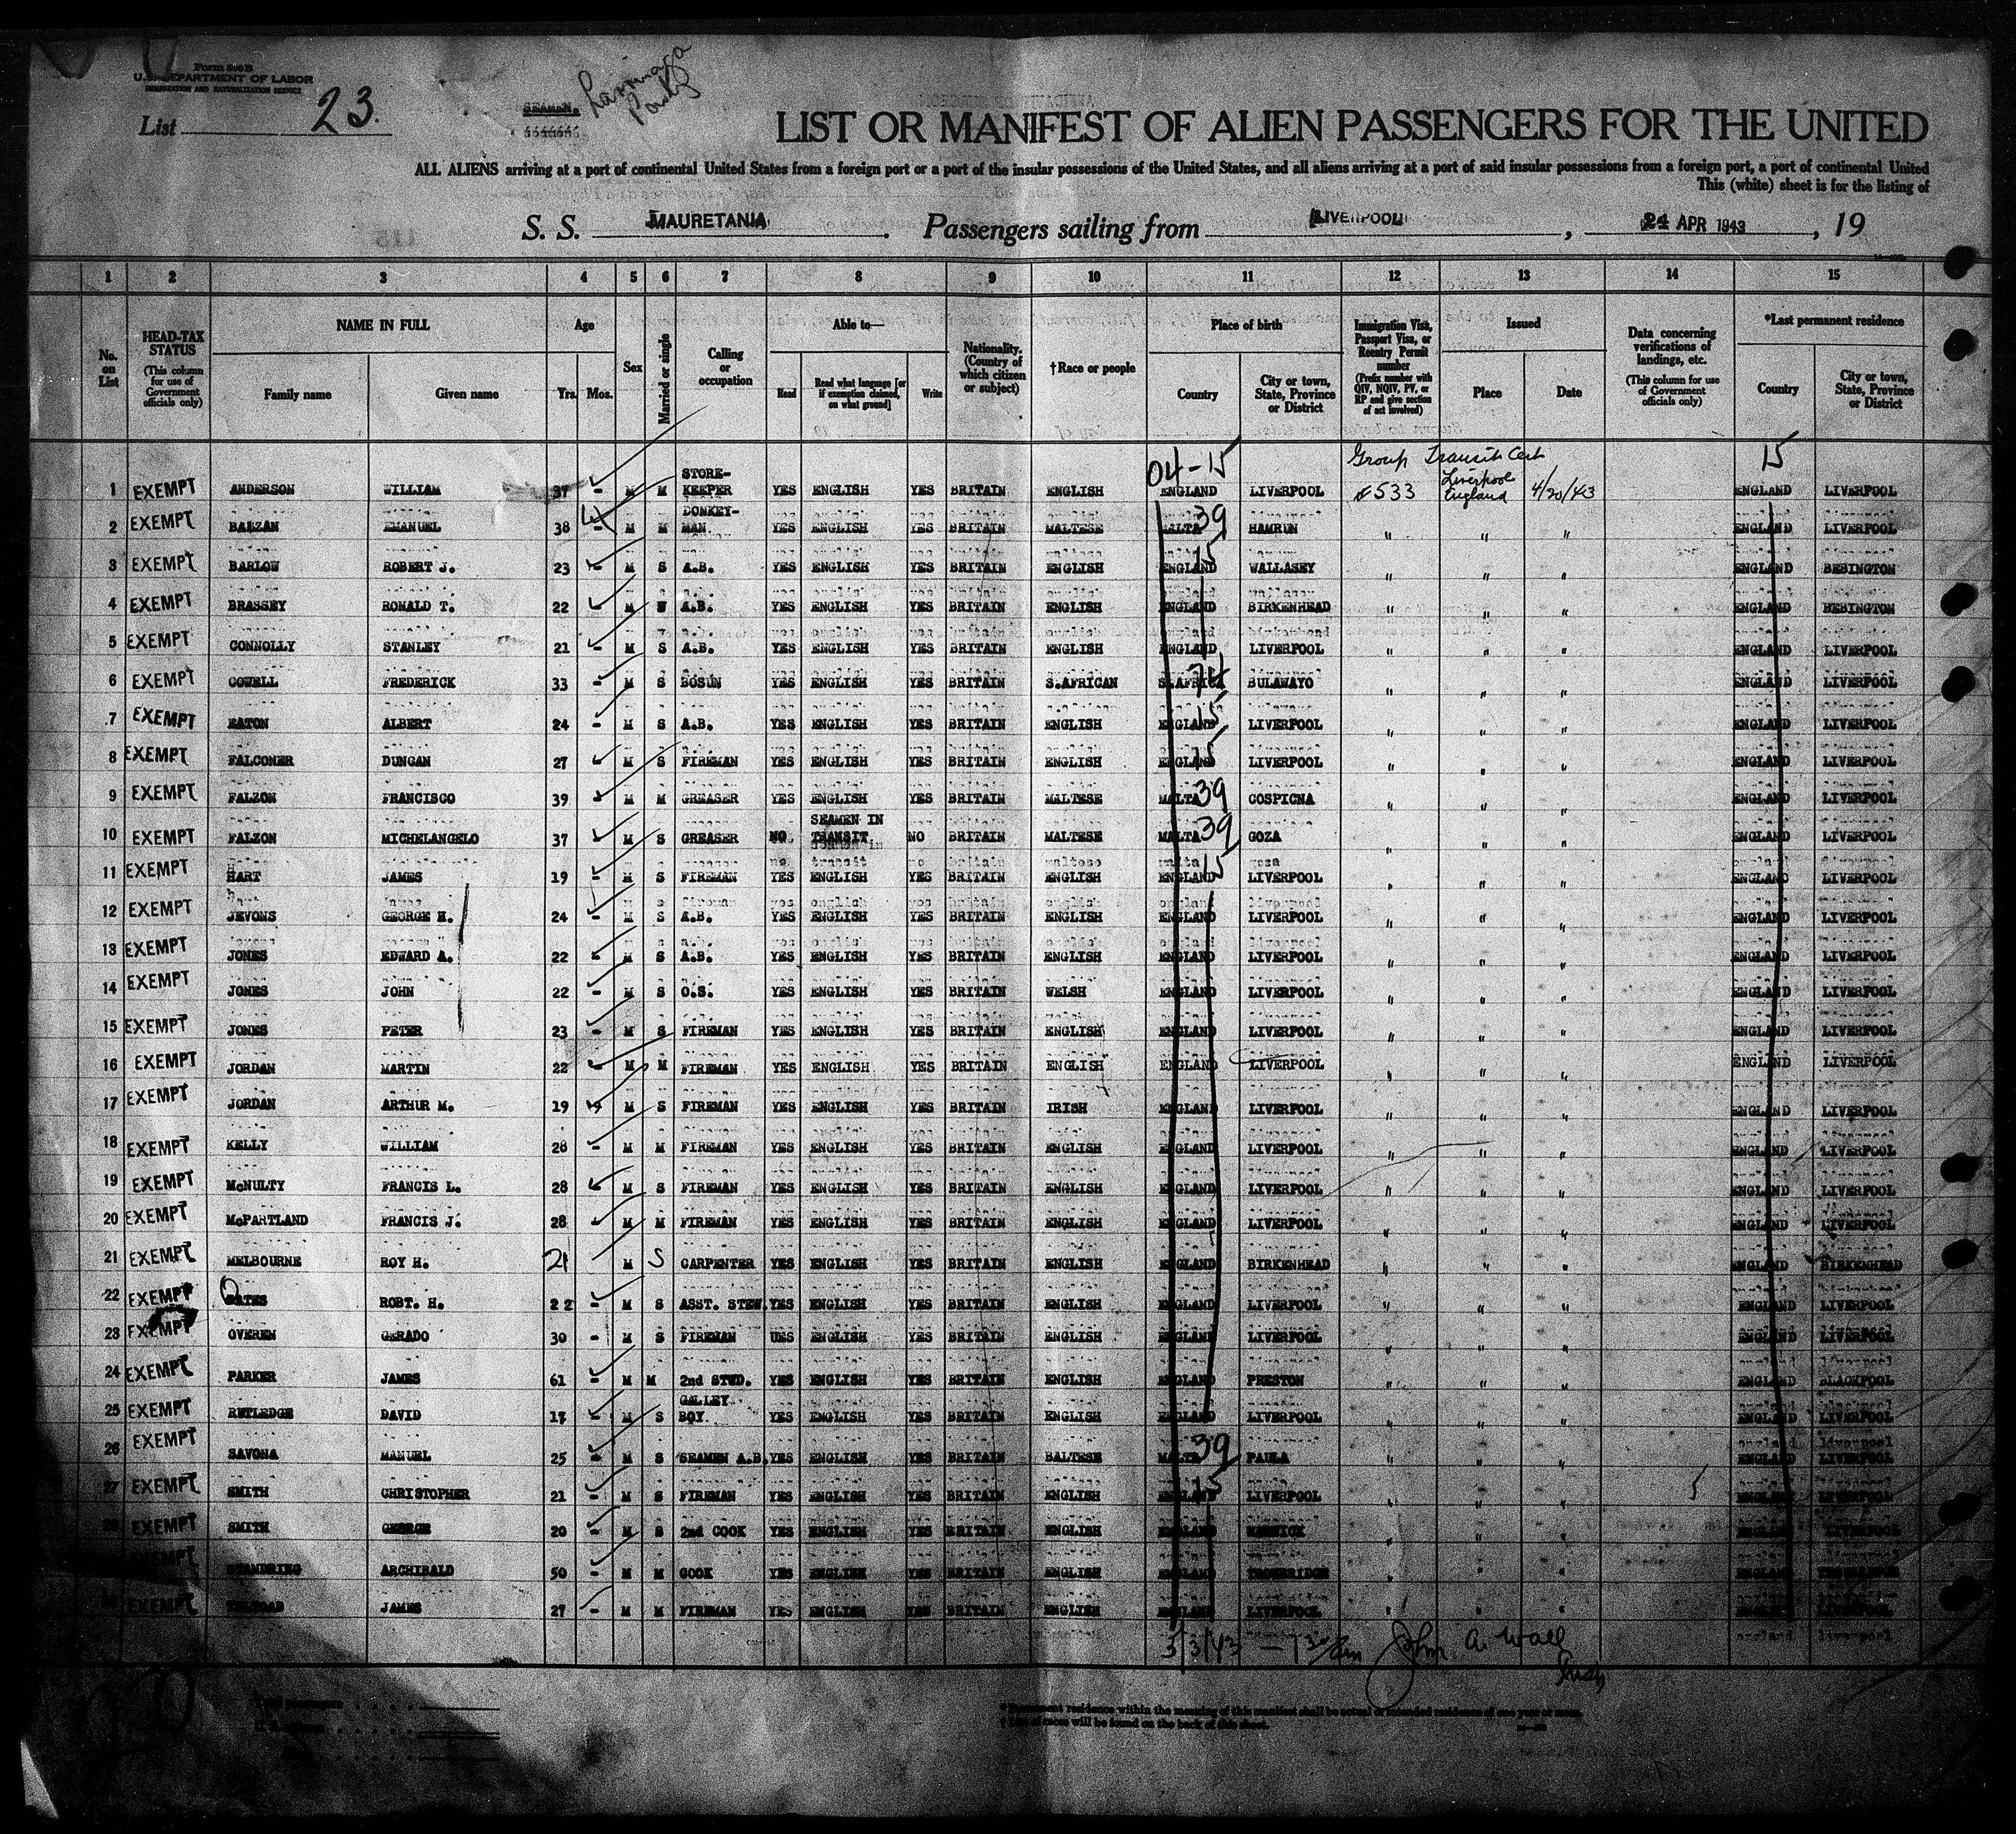 Form 500B
U.S. DEPARTMENT OF LABOR
IMMIGRATION AND NATURALIZATION SERVICE
List 23.
SEAMEN.
LIST OR MANIFEST OF ALIEN PASSENGERS FOR THE UNITED
ALL ALIENS arriving at a port of continental United States from a foreign port or a port of the insular possessions of the United States, and all aliens arriving at a port of said insular possessions from a foreign port, a port of continental United
This (white) sheet is for the listing of
S. S. MAURETANIA. Passengers sailing from LIVERPOOL, 24 APR 1943, 19
1 2 3 4 5 6 7 8 9 10 11 12 13 14 15
No. on List
HEAD-TAX STATUS (This column for use of Government officials only)
NAME IN FULL Family name Given name
Age Yrs. Mos.
Sex
Married or single
Calling or occupation
Able to— Read Read what language [or if exemption claimed, on what ground] Write
Nationality. (Country of which citizen or subject)
†Race or people
Place of birth Country City or town, State, Province or District
Immigration Visa, Passport Visa, or Reentry Permit number (Prefix number with QIV, NQIV, PV, or RP and give section of act involved)
Issued Place Date
Data concerning verifications of landings, etc. (This column for use of Government officials only)
*Last permanent residence Country City or town, State, Province or District
04-15 Group Transit Cert 15
1 EXEMPT ANDERSON WILLIAM 37 - M M STORE-KEEPER YES ENGLISH YES BRITAIN ENGLISH ENGLAND LIVERPOOL #533 Liverpool England 4/20/43 ENGLAND LIVERPOOL
2 EXEMPT BALZAN EMANUEL 38 - M M DONKEY-MAN. YES ENGLISH YES BRITAIN MALTESE MALTA 39 HAMRUN " " " ENGLAND LIVERPOOL
3 EXEMPT BARLOW ROBERT J. 23 - M S A.B. YES ENGLISH YES BRITAIN ENGLISH ENGLAND 15 WALLASEY " " " ENGLAND BEBINGTON
4 EXEMPT BRASSEY RONALD T. 22 - M A.B. YES ENGLISH YES BRITAIN ENGLISH ENGLAND BIRKENHEAD " " " ENGLAND BEBINGTON
5 EXEMPT CONNOLLY STANLEY 21 - M S A.B. YES ENGLISH YES BRITAIN ENGLISH ENGLAND LIVERPOOL " " " ENGLAND LIVERPOOL
6 EXEMPT COWELL FREDERICK 33 - M S BOSUN YES ENGLISH YES BRITAIN S.AFRICAN S.AFRICA 74 BULAWAYO " " " ENGLAND LIVERPOOL
7 EXEMPT EATON ALBERT 24 - M S A.B. YES ENGLISH YES BRITAIN ENGLISH ENGLAND 15 LIVERPOOL " " " ENGLAND LIVERPOOL
8 EXEMPT FALCONER DUNCAN 27 - M S FIREMAN YES ENGLISH YES BRITAIN ENGLISH ENGLAND 15 LIVERPOOL " " " ENGLAND LIVERPOOL
9 EXEMPT FALZON FRANCISCO 39 - M M GREASER YES ENGLISH YES BRITAIN MALTESE MALTA 39 COSPICNA " " " ENGLAND LIVERPOOL
10 EXEMPT FALZON MICHELANGELO 37 - M S GREASER NO SEAMEN IN TRANSIT NO BRITAIN MALTESE MALTA 39 GOZA " " " ENGLAND LIVERPOOL
11 EXEMPT HART JAMES 19 - M S FIREMAN YES ENGLISH YES BRITAIN ENGLISH ENGLAND 15 LIVERPOOL " " " ENGLAND LIVERPOOL
12 EXEMPT JEVONS GEORGE H. 24 - M S A.B. YES ENGLISH YES BRITAIN ENGLISH ENGLAND LIVERPOOL " " " ENGLAND LIVERPOOL
13 EXEMPT JONES EDWARD A. 22 - M S A.B. YES ENGLISH YES BRITAIN ENGLISH ENGLAND LIVERPOOL " " " ENGLAND LIVERPOOL
14 EXEMPT JONES JOHN 22 - M S O.S. YES ENGLISH YES BRITAIN WELSH ENGLAND LIVERPOOL " " " ENGLAND LIVERPOOL
15 EXEMPT JONES PETER 23 - M S FIREMAN YES ENGLISH YES BRITAIN ENGLISH ENGLAND LIVERPOOL " " " ENGLAND LIVERPOOL
16 EXEMPT JORDAN MARTIN 22 - M M FIREMAN YES ENGLISH YES BRITAIN ENGLISH ENGLAND LIVERPOOL " " " ENGLAND LIVERPOOL
17 EXEMPT JORDAN ARTHUR M. 19 M S FIREMAN YES ENGLISH YES BRITAIN IRISH ENGLAND LIVERPOOL " " " ENGLAND LIVERPOOL
18 EXEMPT KELLY WILLIAM 28 - M M FIREMAN YES ENGLISH YES BRITAIN ENGLISH ENGLAND LIVERPOOL " " " ENGLAND LIVERPOOL
19 EXEMPT McNULTY FRANCIS L. 28 - M S FIREMAN YES ENGLISH YES BRITAIN ENGLISH ENGLAND LIVERPOOL " " " ENGLAND LIVERPOOL
20 EXEMPT McPARTLAND FRANCIS J. 28 - M M FIREMAN YES ENGLISH YES BRITAIN ENGLISH ENGLAND LIVERPOOL " " " ENGLAND LIVERPOOL
21 EXEMPT MELBOURNE ROY H. 21 M S CARPENTER YES ENGLISH YES BRITAIN ENGLISH ENGLAND BIRKENHEAD " " " ENGLAND BIRKENHEAD
22 EXEMPT OATES ROBT. H. 22 - M S ASST. STEW. YES ENGLISH YES BRITAIN ENGLISH ENGLAND LIVERPOOL " " " ENGLAND LIVERPOOL
23 EXEMPT OVEREN GERADO 30 - M S FIREMAN UES ENGLISH YES BRITAIN ENGLISH ENGLAND LIVERPOOL " " " ENGLAND LIVERPOOL
24 EXEMPT PARKER JAMES 61 - M M 2nd STWD. YES ENGLISH YES BRITAIN ENGLISH ENGLAND PRESTON " " " ENGLAND BLACKPOOL
25 EXEMPT RUTLEDGE DAVID 17 - M S GALLEY BOY YES ENGLISH YES BRITAIN ENGLISH ENGLAND LIVERPOOL " " " ENGLAND LIVERPOOL
26 EXEMPT SAVONA MANUEL 25 - M S SEAMEN A.B. YES ENGLISH YES BRITAIN BALTESE MALTA 39 PAULA " " " ENGLAND LIVERPOOL
27 EXEMPT SMITH CHRISTOPHER 21 - M S FIREMAN YES ENGLISH YES BRITAIN ENGLISH ENGLAND 15 LIVERPOOL " " " ENGLAND LIVERPOOL
28 EXEMPT SMITH GEORGE 20 - M S 2nd COOK YES ENGLISH YES BRITAIN ENGLISH ENGLAND WARWICK " " " ENGLAND LIVERPOOL
EXEMPT STANDRING ARCHIBALD 50 - M M COOK YES ENGLISH YES BRITAIN ENGLISH ENGLAND " " " ENGLAND
EXEMPT JAMES 27 - M M FIREMAN YES ENGLISH YES BRITAIN ENGLISH ENGLAND LIVERPOOL " " " ENGLAND LIVERPOOL
england liverpool
5/3/43 - John A. Wall
Total passengers
* Permanent residence within the meaning of this manifest shall be actual or intended residence of one year or more.
† List of races will be found on the back of this sheet.